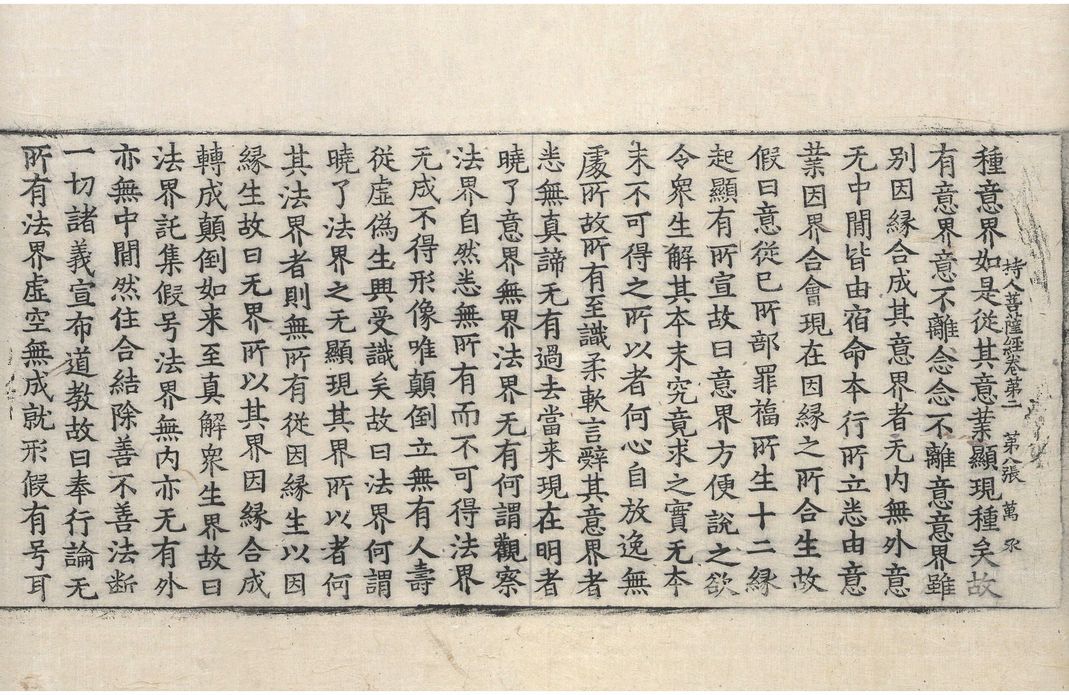 持人菩薩經卷第二 第八張 萬
種意界如是從其意業顯現種矣故
有意界意不離念念不離意意界雖
别因縁合成其意界者无内無外意
无中間皆由宿命本行所立悉由意
業因界合會現在因縁之所合生故
假曰意從已所部罪福所生十二縁
起顯有所宣故曰意界方便說之欲
令衆生解其夲末究竟求之實无夲
末不可得之所以者何心自放逸無
處所故所有至識柔軟言辭其意界者
悉無真諦无有過去當来現在明者
曉了意界無界法界无有何謂觀察
法界自然悉無所有而不可得法界
无成不得形像唯顛倒立無有人壽
從虛偽生興受識矣故曰法界何謂
曉了法界之无顯現其界所以者何
其法界者則無所有從因縁生以因
縁生故曰无界所以其界因縁合成
轉成顛倒如来至真解衆生界故曰
法界託集假号法界無内亦无有外
亦無中間然住合結除善不善法断
一切諸義宣布道教故曰奉行論无
所有法界虚空無成就形假有号耳